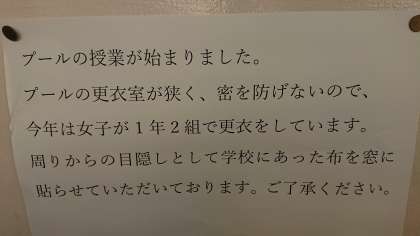 プールの授業が始まりました。
プールの更衣室が狭く、密を防げないので、
今年は女子が１年２組で更衣をしています。
周りからの目隠しとして学校にあった布を窓に
貼らせていただいております。ご了承ください。